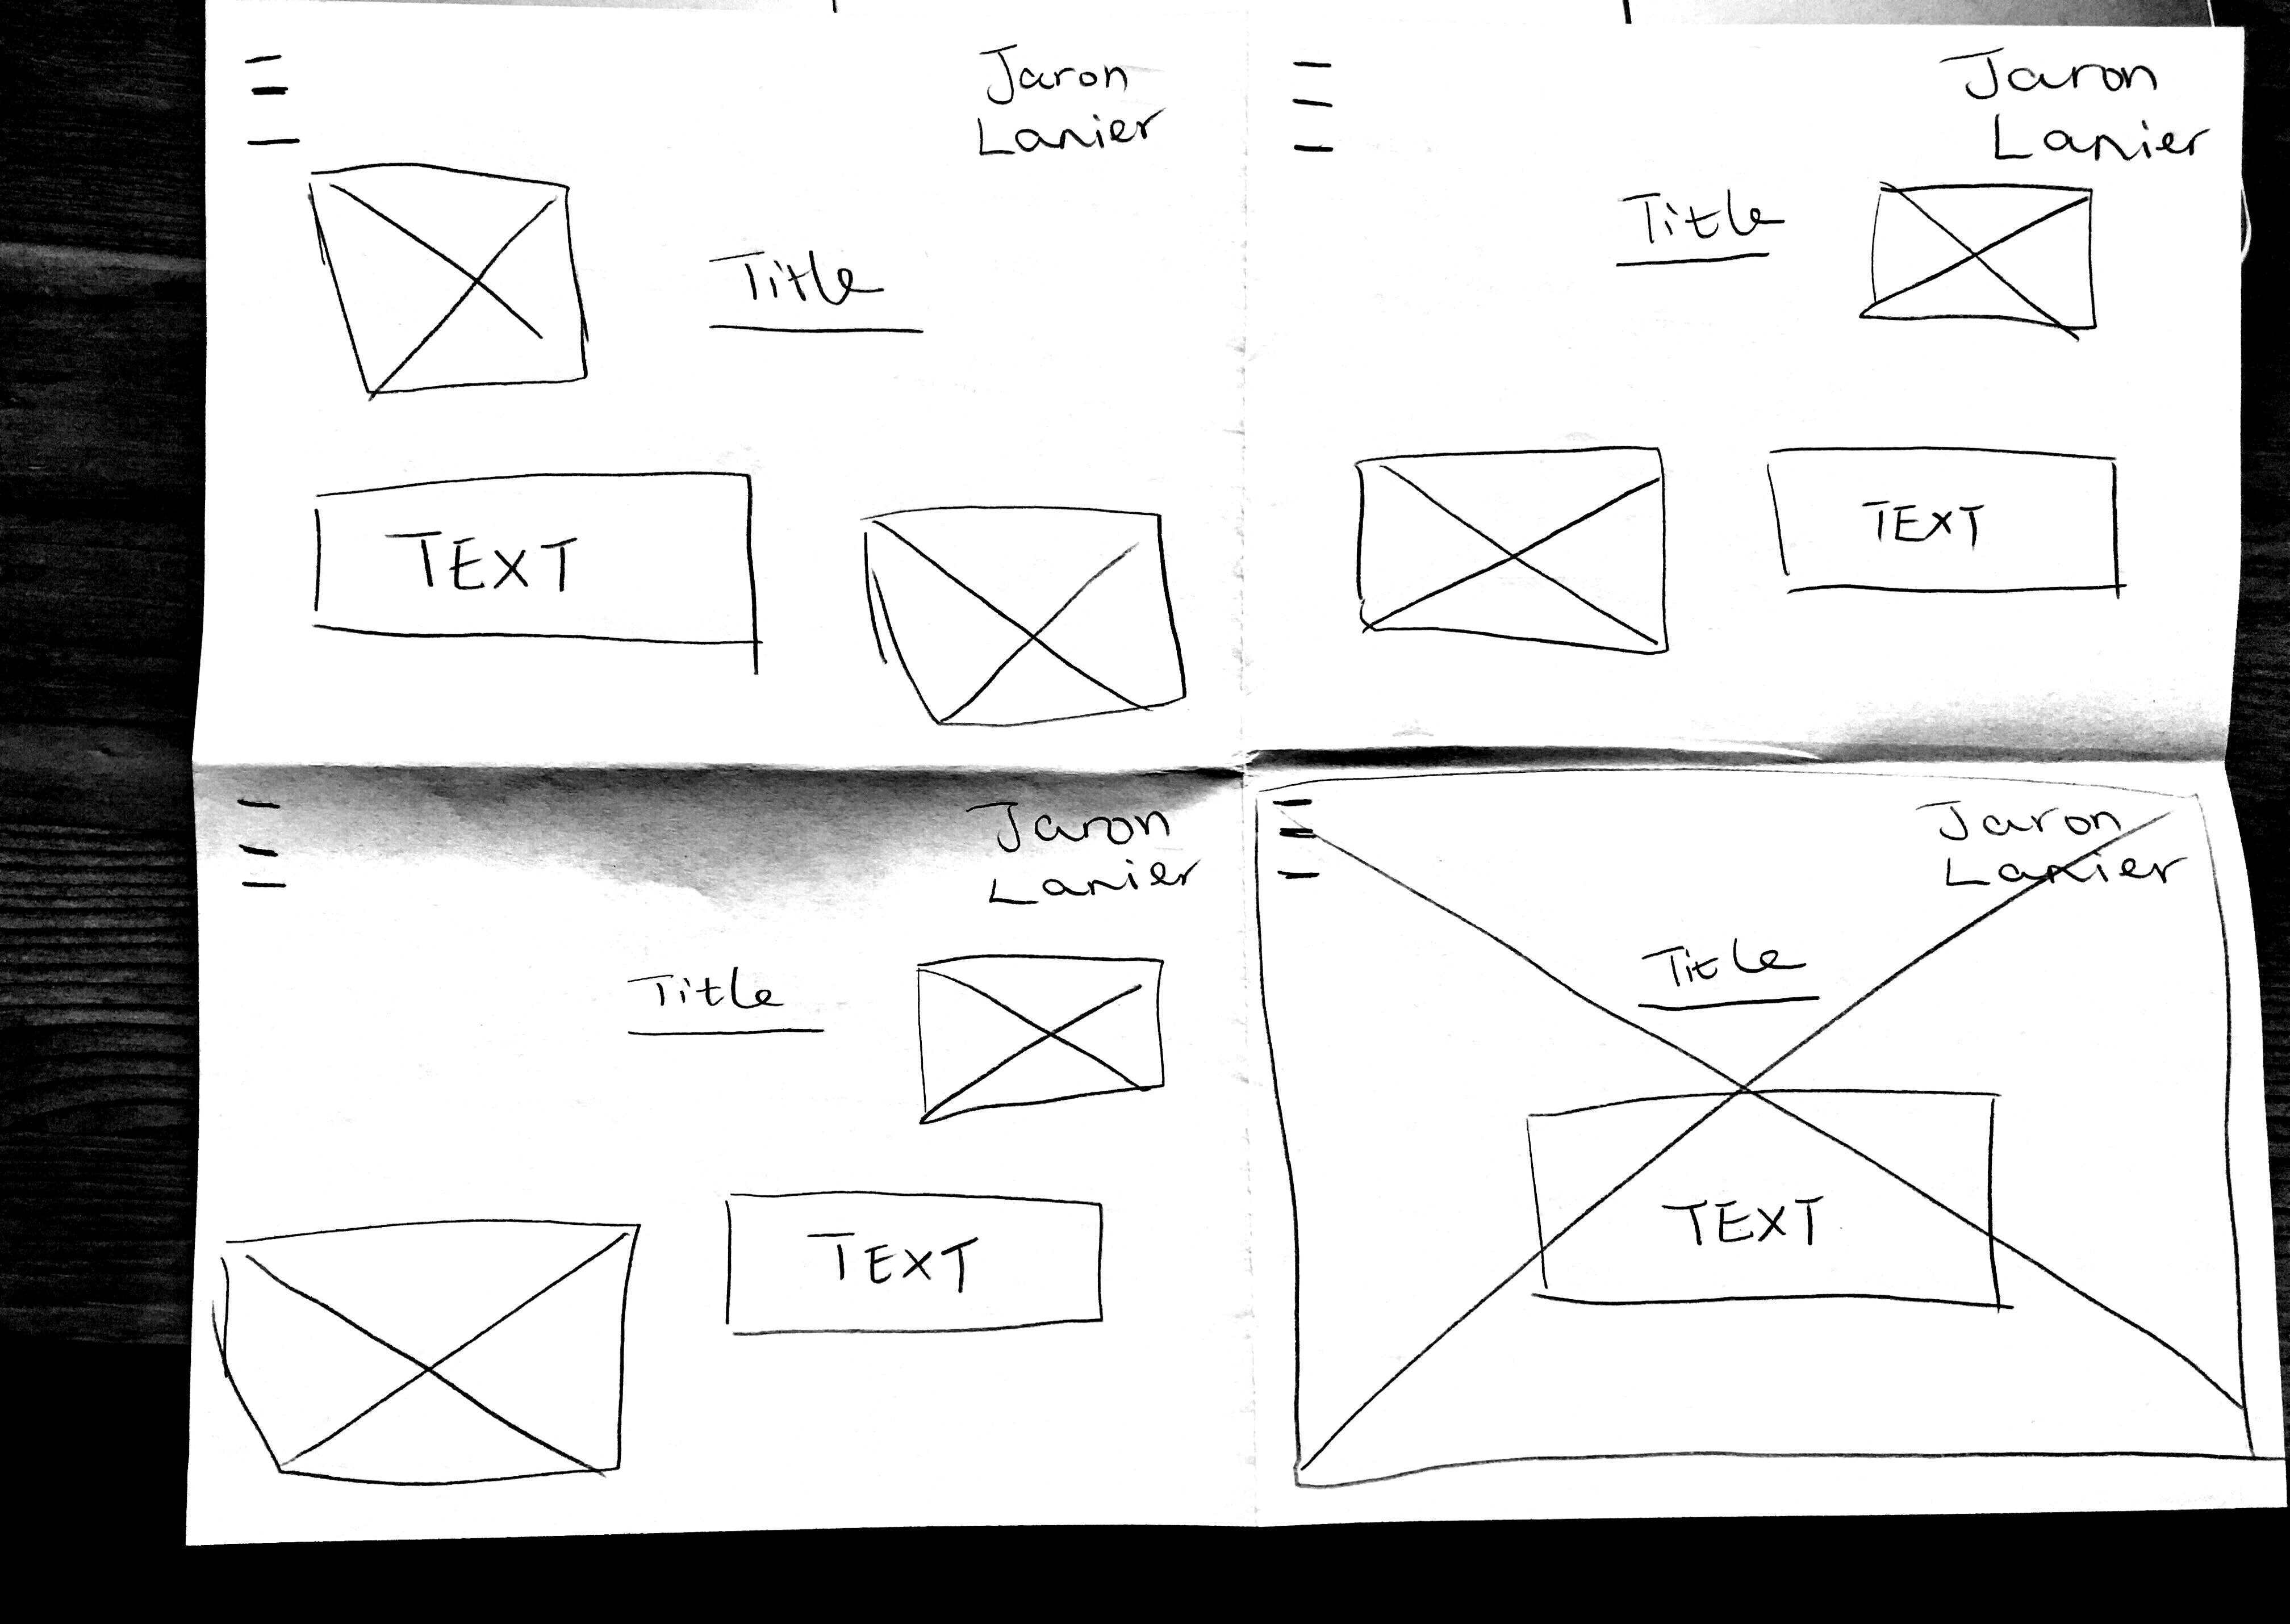 Jaron
Lanier
Title
TEXT
Jaron
Lanier
Title
TEXT
Jaron
Lanier
Title
TEXT
Jaron
Lanier
Title
TEXT